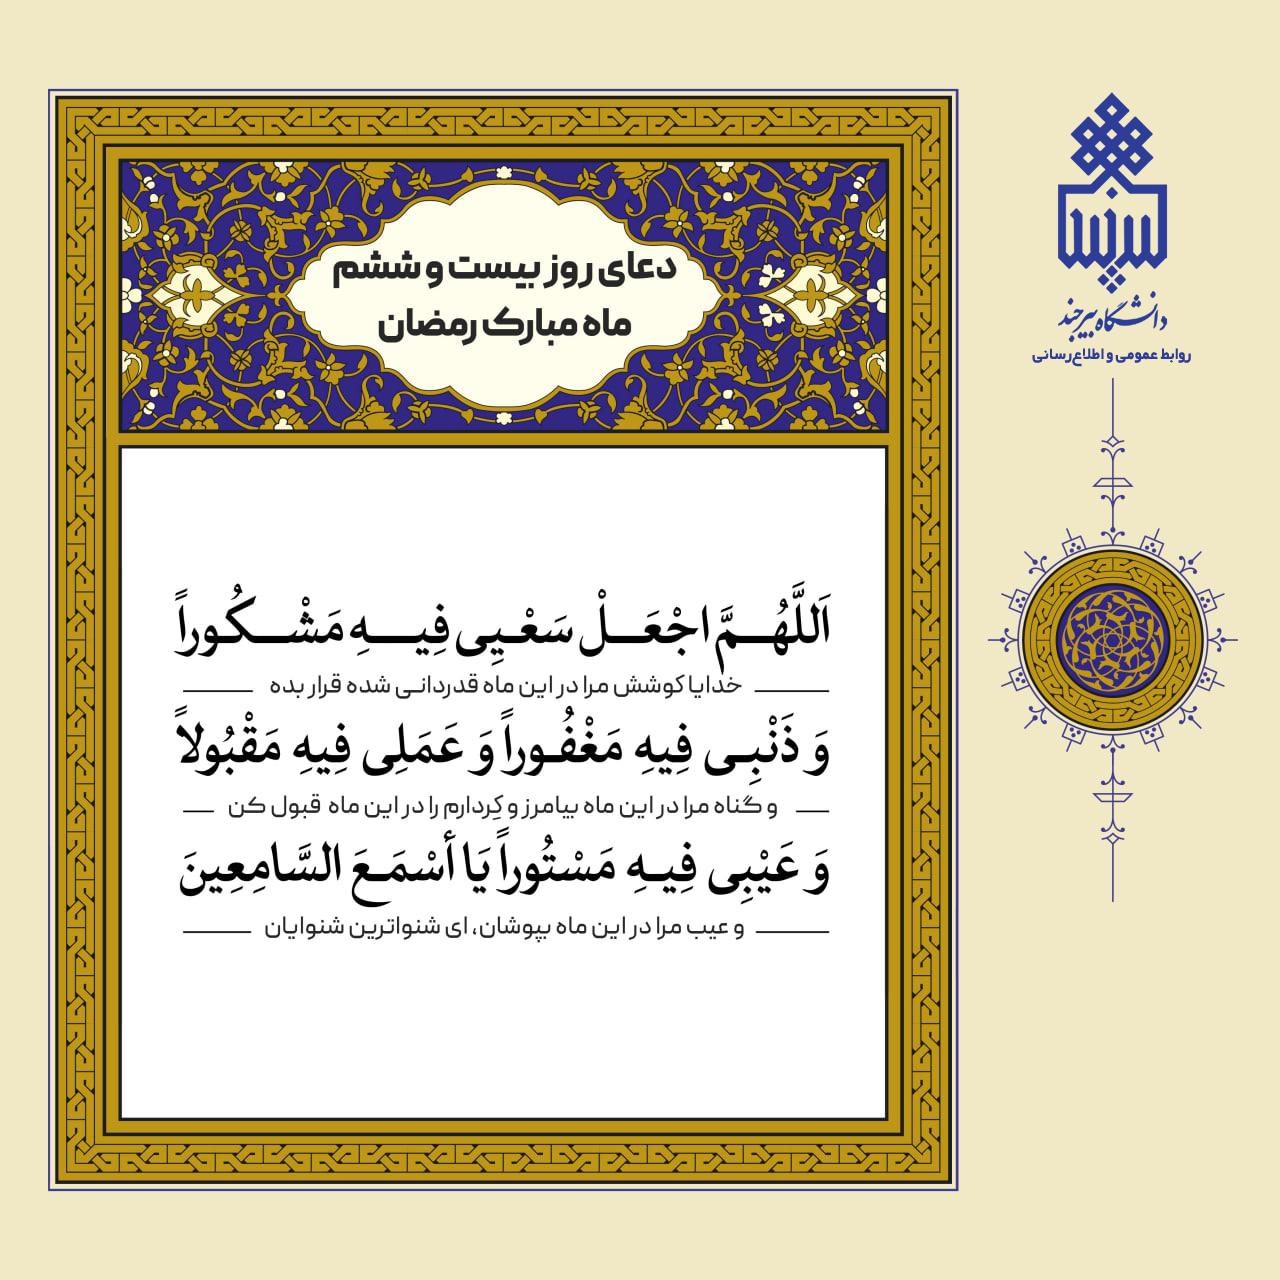 دعای روز بیست و ششم
ماه مبارک رمضان
اَللَّهُمَّ اجْعَلْ سَعْيِي فِيهِ مَشْكُوراً
خدایا کوشش مرا در این ماه قدردانی شده قرار بده
وَ ذَنْبِی فِيهِ مَغْفُوراً وَ عَمَلِی فِيهِ مَقْبُولاً
و گناه مرا در این ماه بیامرز و کِردارم را در این ماه قبول کن
وَ عَيْبِی فِيهِ مَسْتُوراً يَا أَسْمَعَ السَّامِعِينَ
و عیب مرا در این ماه بپوشان، ای شنواترین شنوایان
دانشگاه بیرجند
روابط عمومی و اطلاع‌رسانی